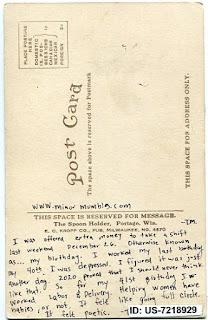 PLACE POSTAGE
HERE
DOMESTIC
1¢
FOREIGN
Post Card
The space above is reserved for Postmark
THIS SPACE FOR ADDRESS ONLY.
www.minormumbles.com
THIS SPACE IS RESERVED FOR MESSAGE.
The Spoon Holder, Portage, Wis.
E. C. KROPP CO., PUB., MILWAUKEE, NO. 4870
-JM.
I was offered extra money to take a shift
last weekend December 26. Otherwise known
as... my birthday. I worked my last birthday
My 40th. I was depressed. I figured it was just
another day. 2020 proved that I should never think
like that. So for my 41st birthday I
worked Labor & Delivery. Helping women have
babies or not. It felt like going full circle.
It felt poetic.
ID: US-7218929